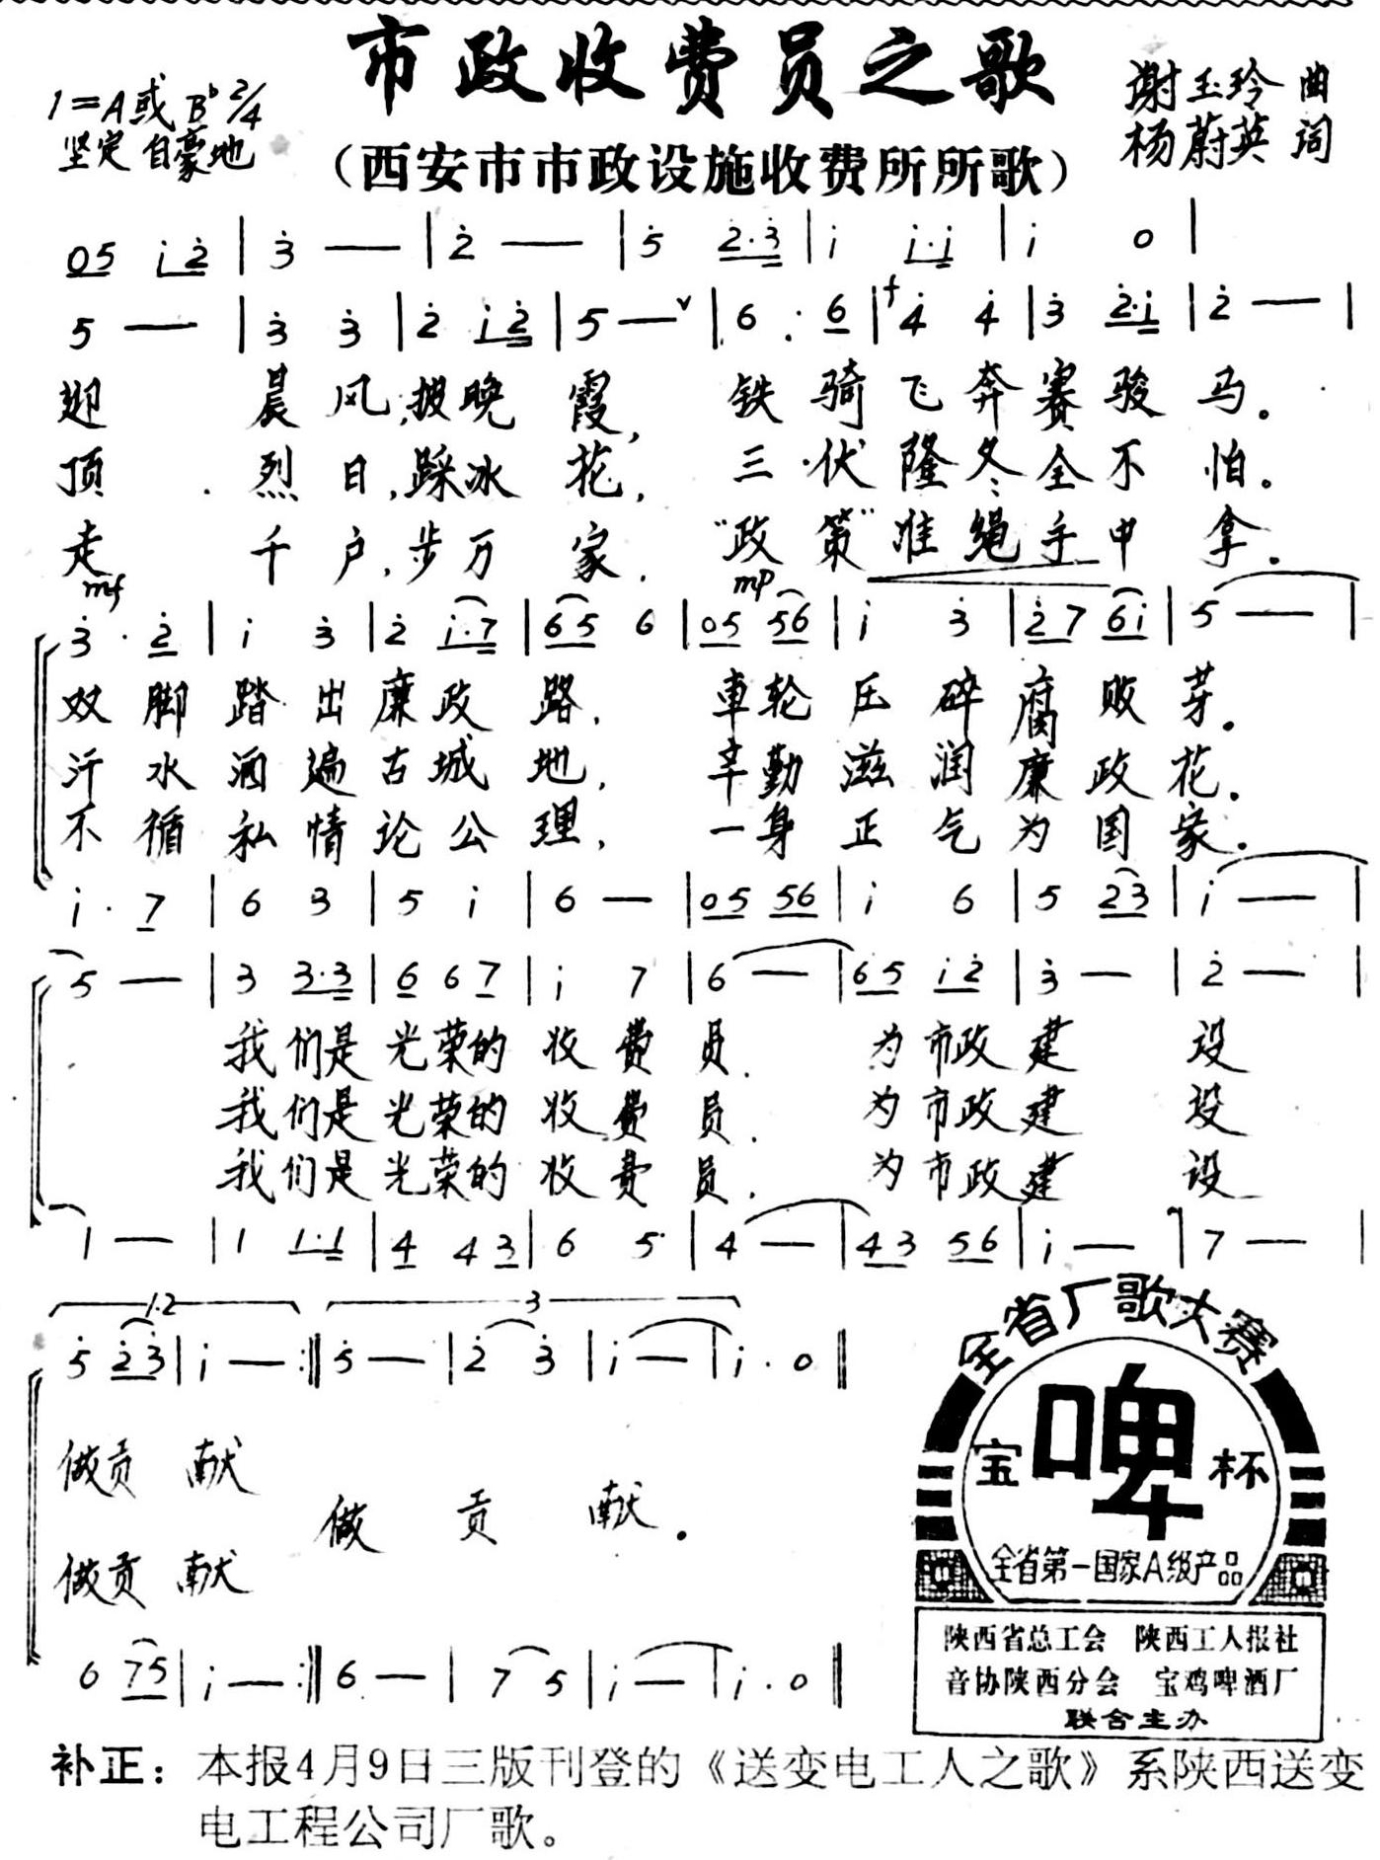 市政收费员之歌
1=A或B♭ 2/4
坚定 自豪地
谢玉玲 曲
杨蔚英 词
(西安市市政设施收费所所歌)
05 i2 | 3 — | 2 — | 5 2·3 | i i·i | i 0 |
5 — | 3 3 | 2 i2 | 5 — v | 6 · 6 | f 4 4 | 3 2·i | 2 — |
迎 晨风,披晚霞, 铁骑飞奔赛骏马。
顶 烈日,踩冰花, 三伏隆冬全不怕。
走 千户,步万家. “政策”准绳手中拿.
mf mp
3 · 2 | i 3 | 2 i·7 | 65 6 | 05 56 | i 3 | 27 6i | 5 — |
双脚踏出廉政路, 車轮压碎腐败芽.
汗水洒遍古城地, 辛勤滋润廉政花.
不循私情论公理, 一身正气为国家.
i · 7 | 6 3 | 5 i | 6 — | 05 56 | i 6 | 5 23 | i — |
5 — | 3 3·3 | 6 6 7 | i 7 | 6 — | 65 i2 | 3 — | 2 — |
我们是光荣的收费员. 为市政建设
我们是光荣的收费员. 为市政建设
我们是光荣的收费员. 为市政建设
1 — | 1 1·1 | 4 4 3 | 6 5 | 4 — | 43 56 | i — | 7 — |
1.2 3
5 23 | i — :‖ 5 — | 2 3 | i — | i · 0 ‖
做贡献
做贡献.
做贡献
6 75 | i — :‖ 6 — | 7 5 | i — | i · 0 ‖
全省厂歌大赛
宝啤杯
全省第一国家A级产品
陕西省总工会 陕西工人报社
音协陕西分会 宝鸡啤酒厂
联合主办
补正：本报4月9日三版刊登的《送变电工人之歌》系陕西送变
电工程公司厂歌。